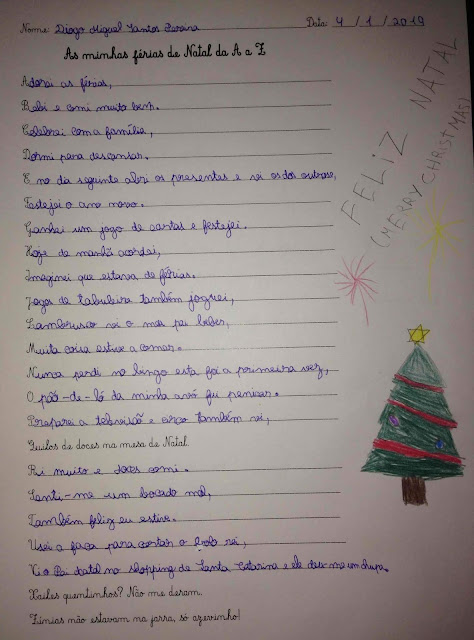 Nome: Diogo Miguel Santos Pereira Data: 4 / 1 / 2019
As minhas férias de Natal da A a Z
Adorei as férias,
Bebi e comi muito bem.
Celebrei com a família,
Dormi para descansar.
E no dia seguinte abri os presentes e vi os dos outros,
Festejei o ano novo.
Ganhei um jogo de cartas e festejei.
Hoje de manhã acordei,
Imaginei que estava de férias.
Jogos de tabuleiro também joguei,
Lambrusco vi o meu pai beber,
Muita coisa estive a comer.
Nunca perdi no bingo esta foi a primeira vez,
O pão-de-ló da minha avó fui penicar.
Preparei a televisão e circo também vi,
Quilos de doces na mesa de Natal.
Ri muito e doces comi.
Senti-me um bocado mal,
Também feliz eu estive.
Usei a faca para cortar o bolo rei,
Vi o Pai Natal no shopping de Santa Catarina e ele deu-me um chupa.
Xailes quentinhos? Não me deram.
Zínias não estavam na jarra, só azevinho!
FELIZ NATAL
(MERRY CHRISTMAS)